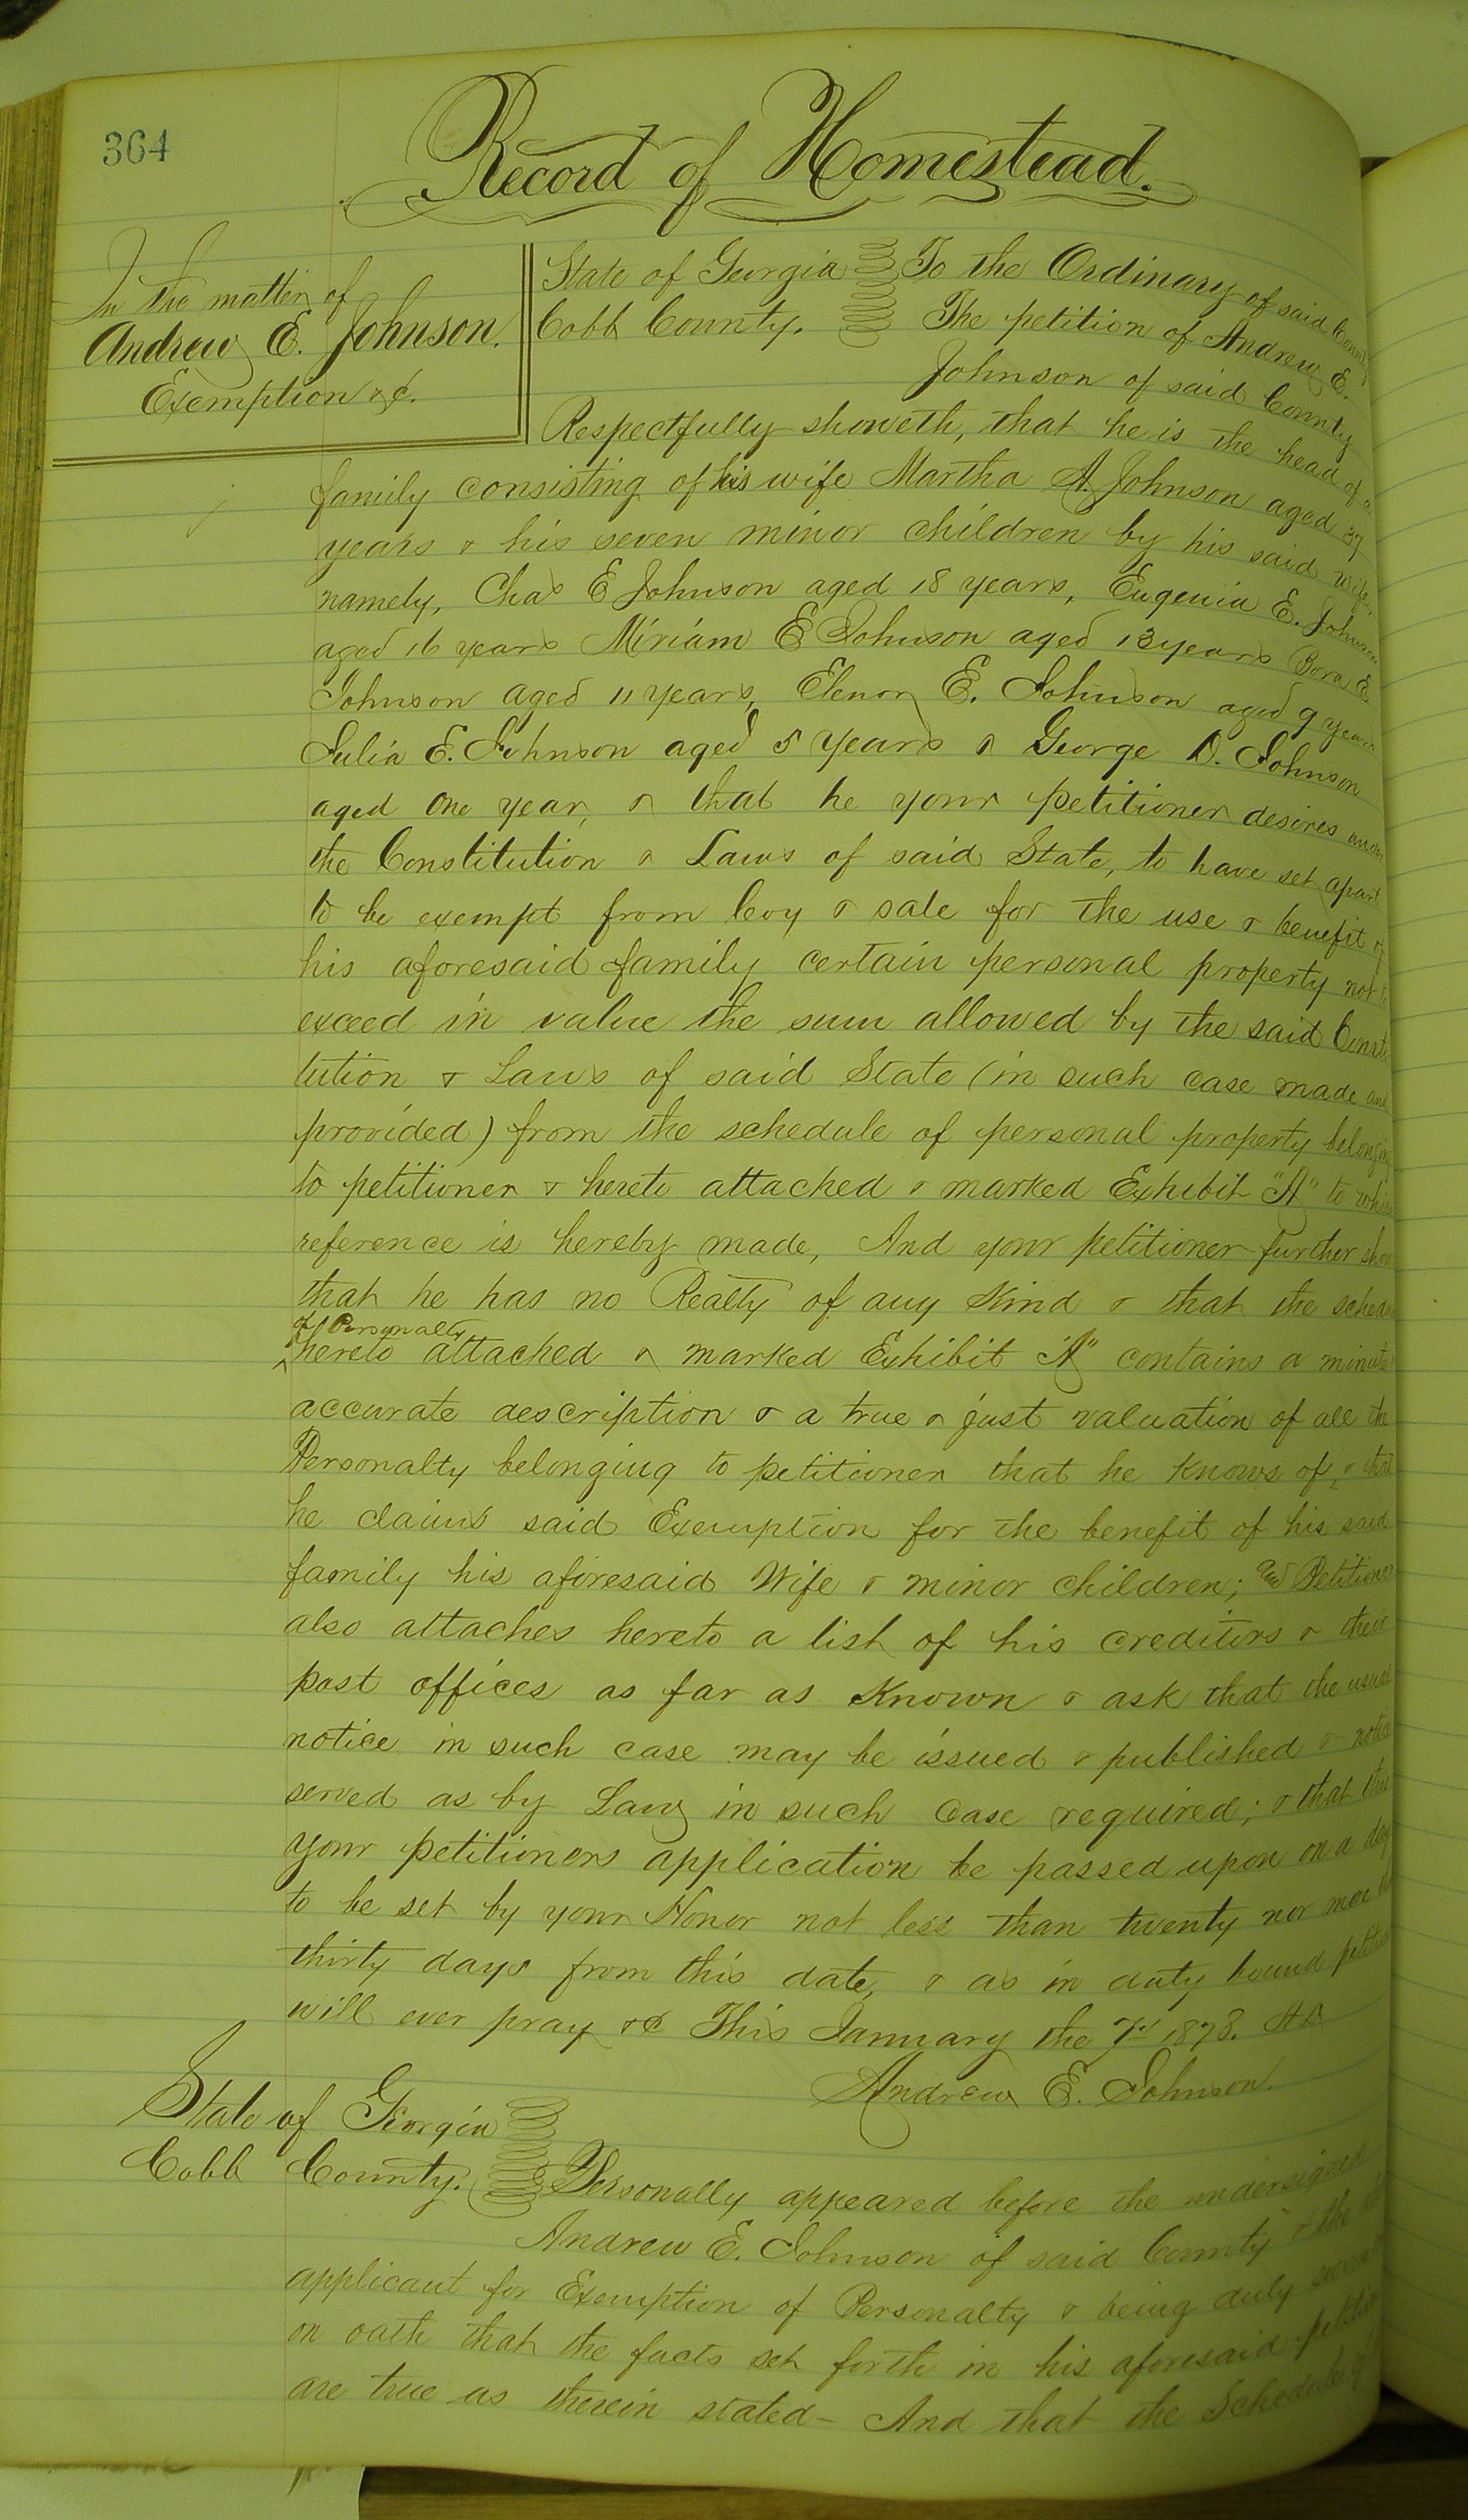 364
Record of Homestead.
In the matter of
Andrew E. Johnson.
Exemption &c.
State of Georgia To the Ordinary of said County
Cobb County. The petition of Andrew E.
Johnson of said County
Respectfully showeth, that he is the head of a
family consisting of his wife Martha A. Johnson aged 37
years & his seven minor children by his said wife,
namely, Chas E Johnson aged 18 years, Eugenia E. Johnson
aged 16 years Miriam E Johnson aged 13 years Bora E
Johnson aged 11 years, Elenor E. Johnson aged 9 years
Julia E. Johnson aged 5 years & George D. Johnson
aged one year, & that he your petitioner desires under
the Constitution & Laws of said State, to have set apart
to be exempt from levy & sale for the use & benefit of
his aforesaid family certain personal property not to
exceed in value the sum allowed by the said Consti
tution & Laws of said State (in such case made and
provided) from the schedule of personal property belonging
to petitioner & hereto attached & marked Exhibit "A" to which
reference is hereby made, And your petitioner further shows
that he has no Realty of any Kind & that the schedule
of Personalty
hereto attached & marked Exhibit "A" contains a minute
accurate description & a true & just valuation of all the
Personalty belonging to petitioner that he knows of, & that
he claims said Exemption for the benefit of his said
family his aforesaid Wife & minor children; and Petitioner
also attaches hereto a list of his creditors & their
post offices as far as Known & ask that the usual
notice in such case may be issued & published & notice
served as by Law in such case required; & that this
your petitioners application be passed upon on a day
to be set by your Honor not less than twenty nor more than
thirty days from this date, & as in duty bound petitioner
will ever pray &c This January the 7th 1878.
Andrew E. Johnson.
State of Georgia
Cobb County. Personally appeared before the undersigned
Andrew E. Johnson of said County & the
applicant for Exemption of Personalty & being duly sworn
on oath that the facts set forth in his aforesaid petition
are true as therein stated– And that the Schedule of